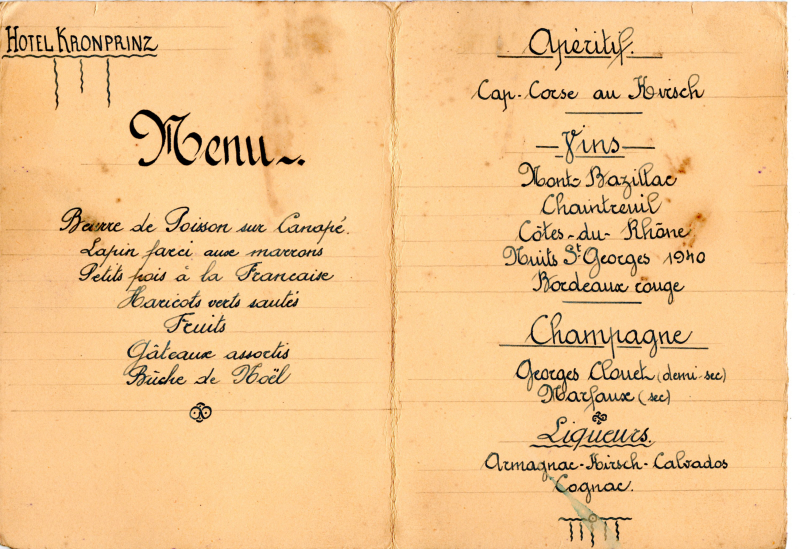 HOTEL KRONPRINZ
Menu
Beurre de Poisson sur Canapé.
Lapin farci aux marrons
Petits pois à la Francaise
Haricots verts sautés
Fruits
Gâteaux assortis
Bûche de Noël
Apéritif.
Cap-Corse au Kirsch
Vins
Mont-Bazillac
Chaintreuil
Côtes-du-Rhône
Nuits St Georges 1940
Bordeaux rouge
Champagne
Georges Clouet (demi-sec)
Marfaux (sec)
Liqueurs.
Armagnac-Kirsch-Calvados
Cognac.